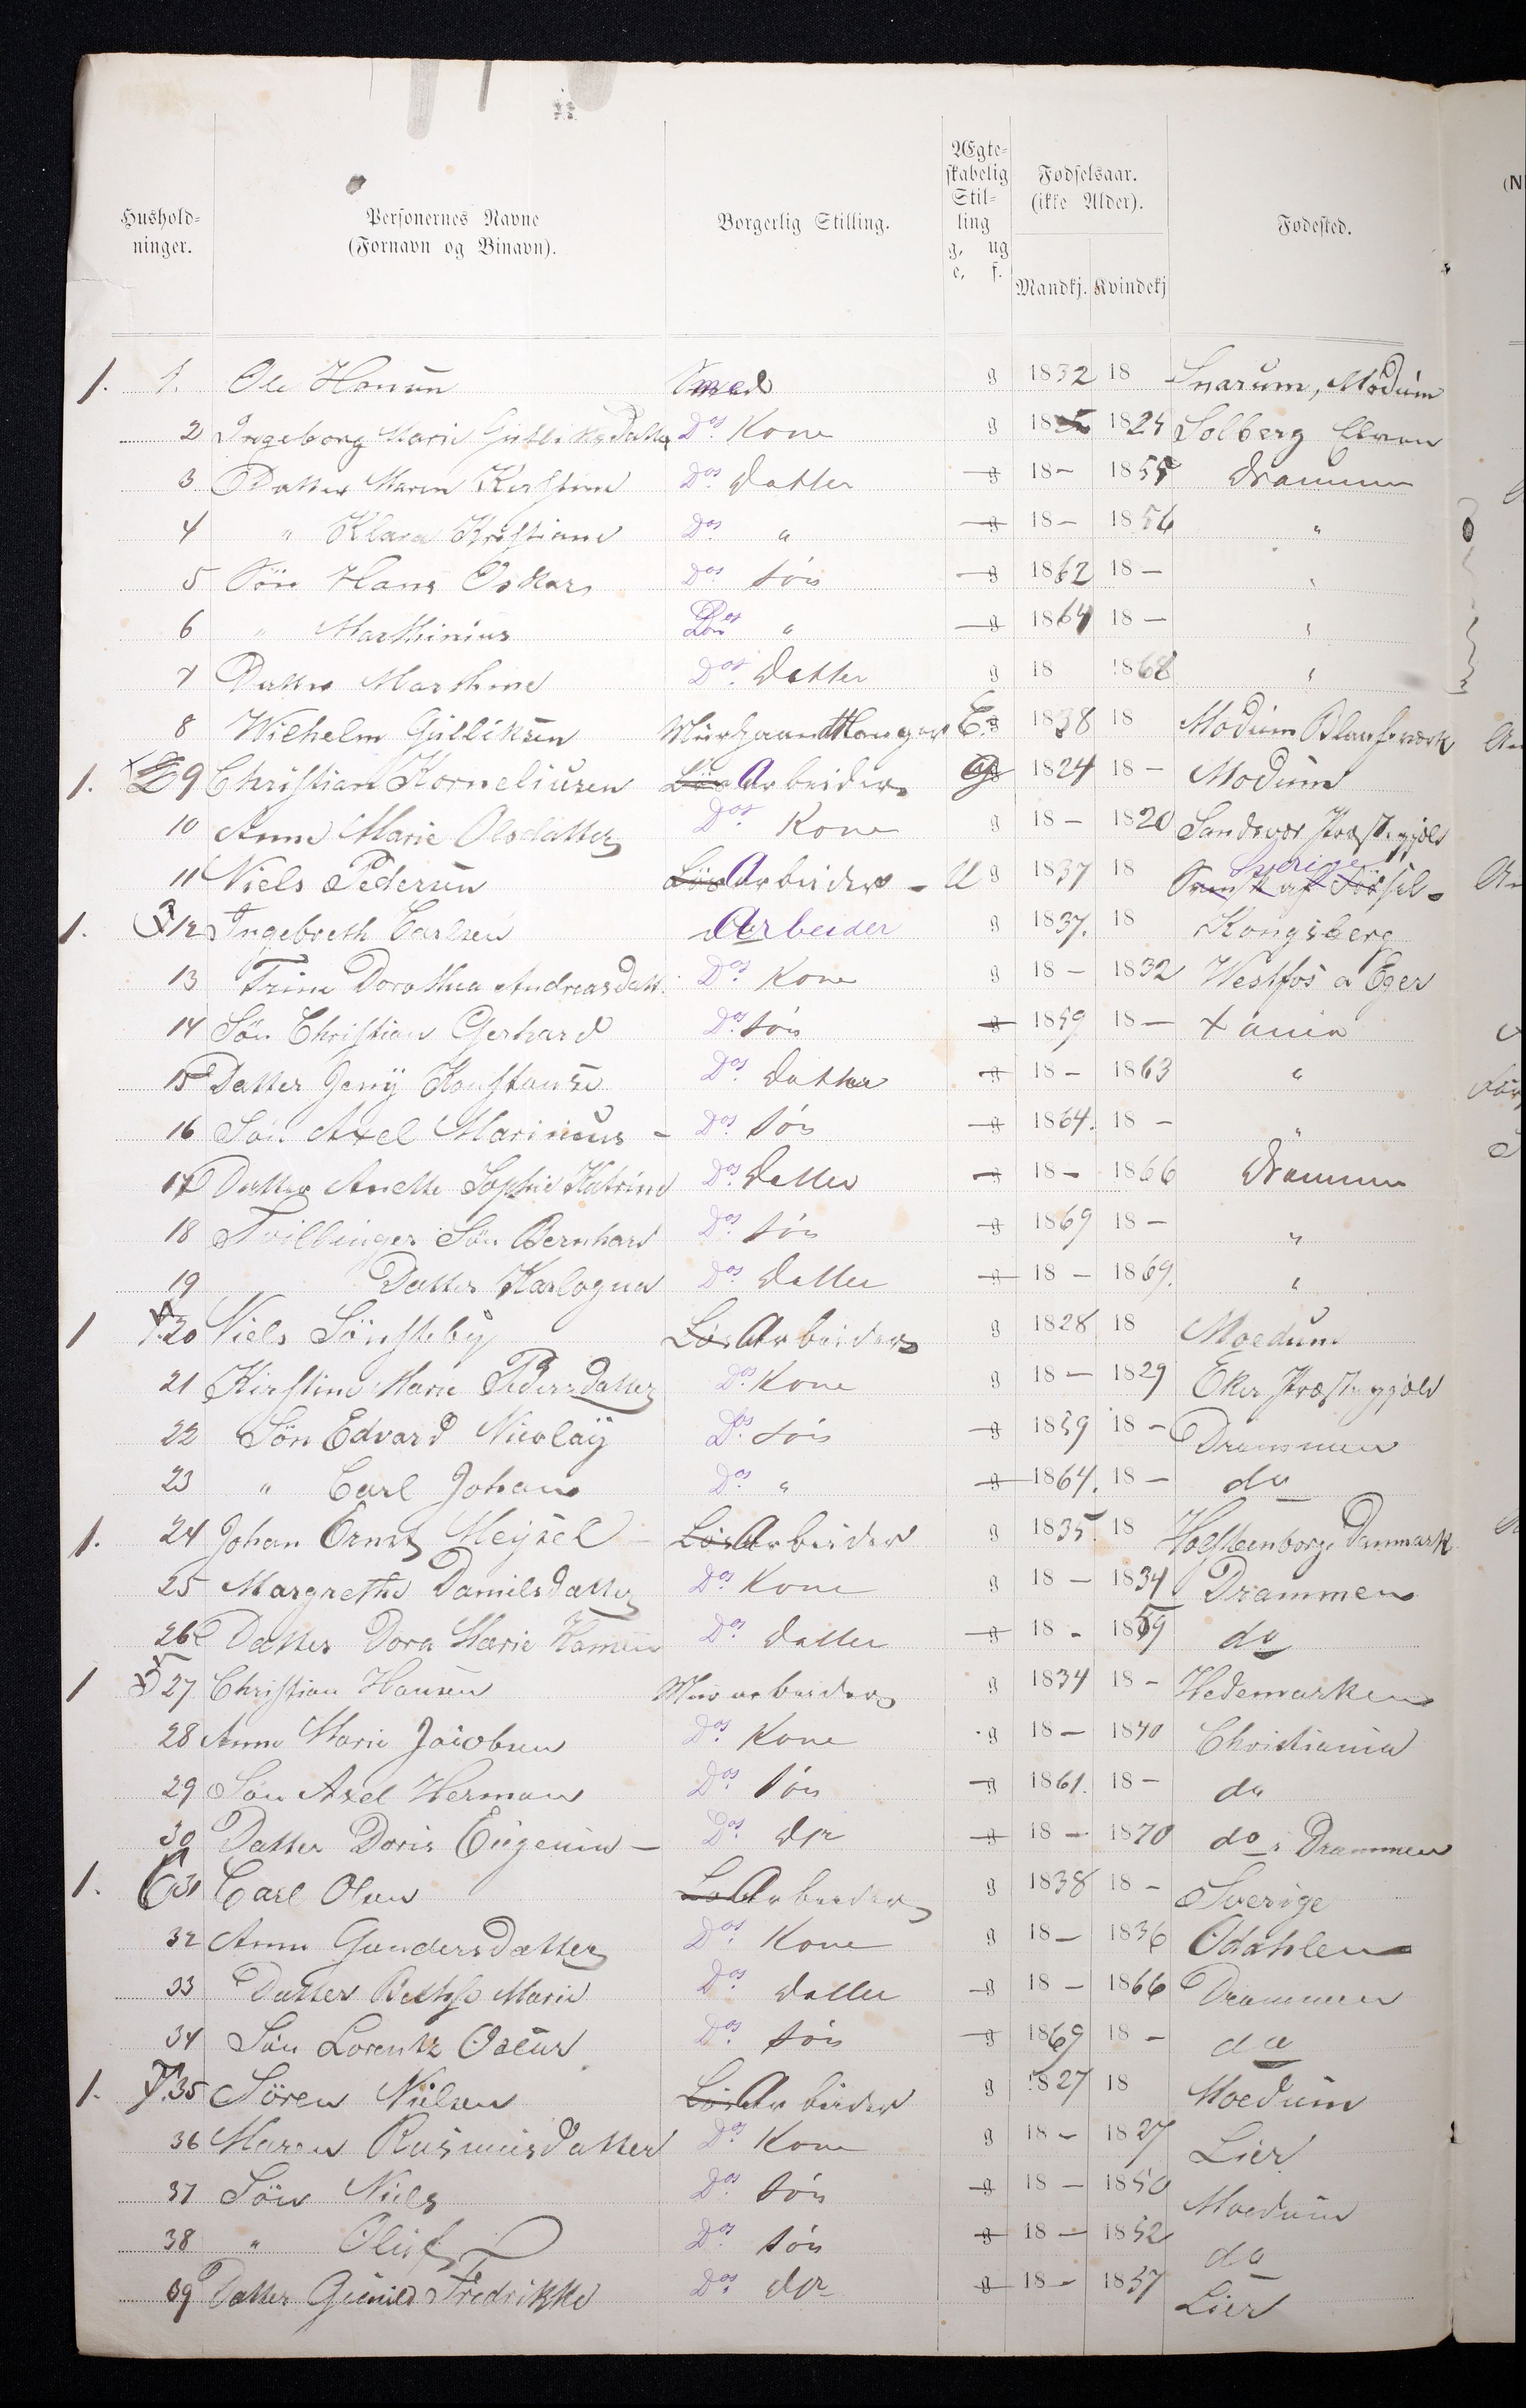 Hushold-ninger. Personernes Navne (Fornavn og Binavn). Borgerlig Stilling. Ægte-skabelig Stil-ling g, ug e, f. Fødselsaar. (ikke Alder). Mandkj. Kvindekj Fødested.
1. 1. Ole Hansen Smed g 1832 18 Snarum, Modum
2 Ingeborg Marie Gulliksdatter Dos Kone g 18 1824 Solberg Elven
3 Datter Maren Kirstine Dos Datter g 18 - 1855 Drammen
4 " Klara Kristiane Dos " g 18 - 1856 "
5 Søn Hans Oskar Dos søn g 1862 18 - "
6 " Marthinius Dos " g 1864 18 - "
7 Datter Marthine Dos Datter g 18 1868 "
8 Wilhelm Gulliksen Murhaandtlanger E g 1838 18 Modum Blaafarveværk
1. 2 9 Christian Korneliusen Løs Arbeider g 1824 18 - Modum
10 Anne Marie Olsdatter Dos Kone g 18 - 1820 Sandsvær Præstegjæld
11 Niels Pedersen Løs Arbeider - U g 1837 18 Svensk af Fødsel - Sverige
1. 3 12 Ingebreth Carlsen Arbeider g 1837. 18 Kongsberg
13 Trine Dorothea Andreasdatt. Dos Kone g 18 - 1832 Westfos a Eger
14 Søn Christian Gerhard Dos søn g 1859 18 - Xania
15 Datter Jeny Konstanse Dos Datter g 18 - 1863 "
16 Søn Axel Marinius - Dos søn g 1864. 18 - "
17 Datter Anette Sophie Katrine Dos Datter g 18 - 1866 Drammen
18 Tvillinger Søn Bernhard Dos søn g 1869 18 - "
19 Datter Karlogna Dos Datter g 18 - 1869. "
1 4 20 Niels Sønsteby Løs Arbeider g 1828 18 Moedum
21 Kirstine Marie Pedersdatter Dos Kone g 18 - 1829 Eker Præstegjæld
22 Søn Edvard Nicolaÿ Dos søn g 1859 18 - Drammen
23 " Carl Johan Dos " g 1864. 18 - do
1. 24 Johan Ernst Meysel - Løs Arbeider g 1835. 18 Holstenborg, Danmark
25 Margrethe Danielsdatter Dos Kone g 18 - 1834 Drammen
26 Datter Dora Marie Dos Datter g 18 - 1859 do
1 5 27 Christian Hansen Murarbeider g 1834 18 - Hedemarken
28 Anne Marie Jacobsen Dos Kone g 18 - 1840 Christiania
29 Søn Axel Herman Dos søn g 1861. 18 - do
30 Datter Doris Eugenie - Dos Dtr g 18 - 1870 do. Drammen
1. 6 31 Carl Olsen Løs Arbeider g 1838 18 - Sverige
32 Anne Gundersdatter Dos Kone g 18 - 1836 Odahlen
33 Datter Marie Dos Datter g 18 - 1866 Drammen
34 Søn Lorentz Oscar Dos søn g 1869 18 - do
1. 7. 35 Sören Nielsen Løs Arbeider g 1827 18 Moedum
36 Maren Rasmusdatter Dos Kone g 18 - 1827 Lier
37 Søn Niels Dos søn g 18 - 1850 Moedum
38 " Oluf Dos søn g 18 - 1852 do
39 Datter Gunild Fredrikke Dos Dtr g 18 - 1857 Lier